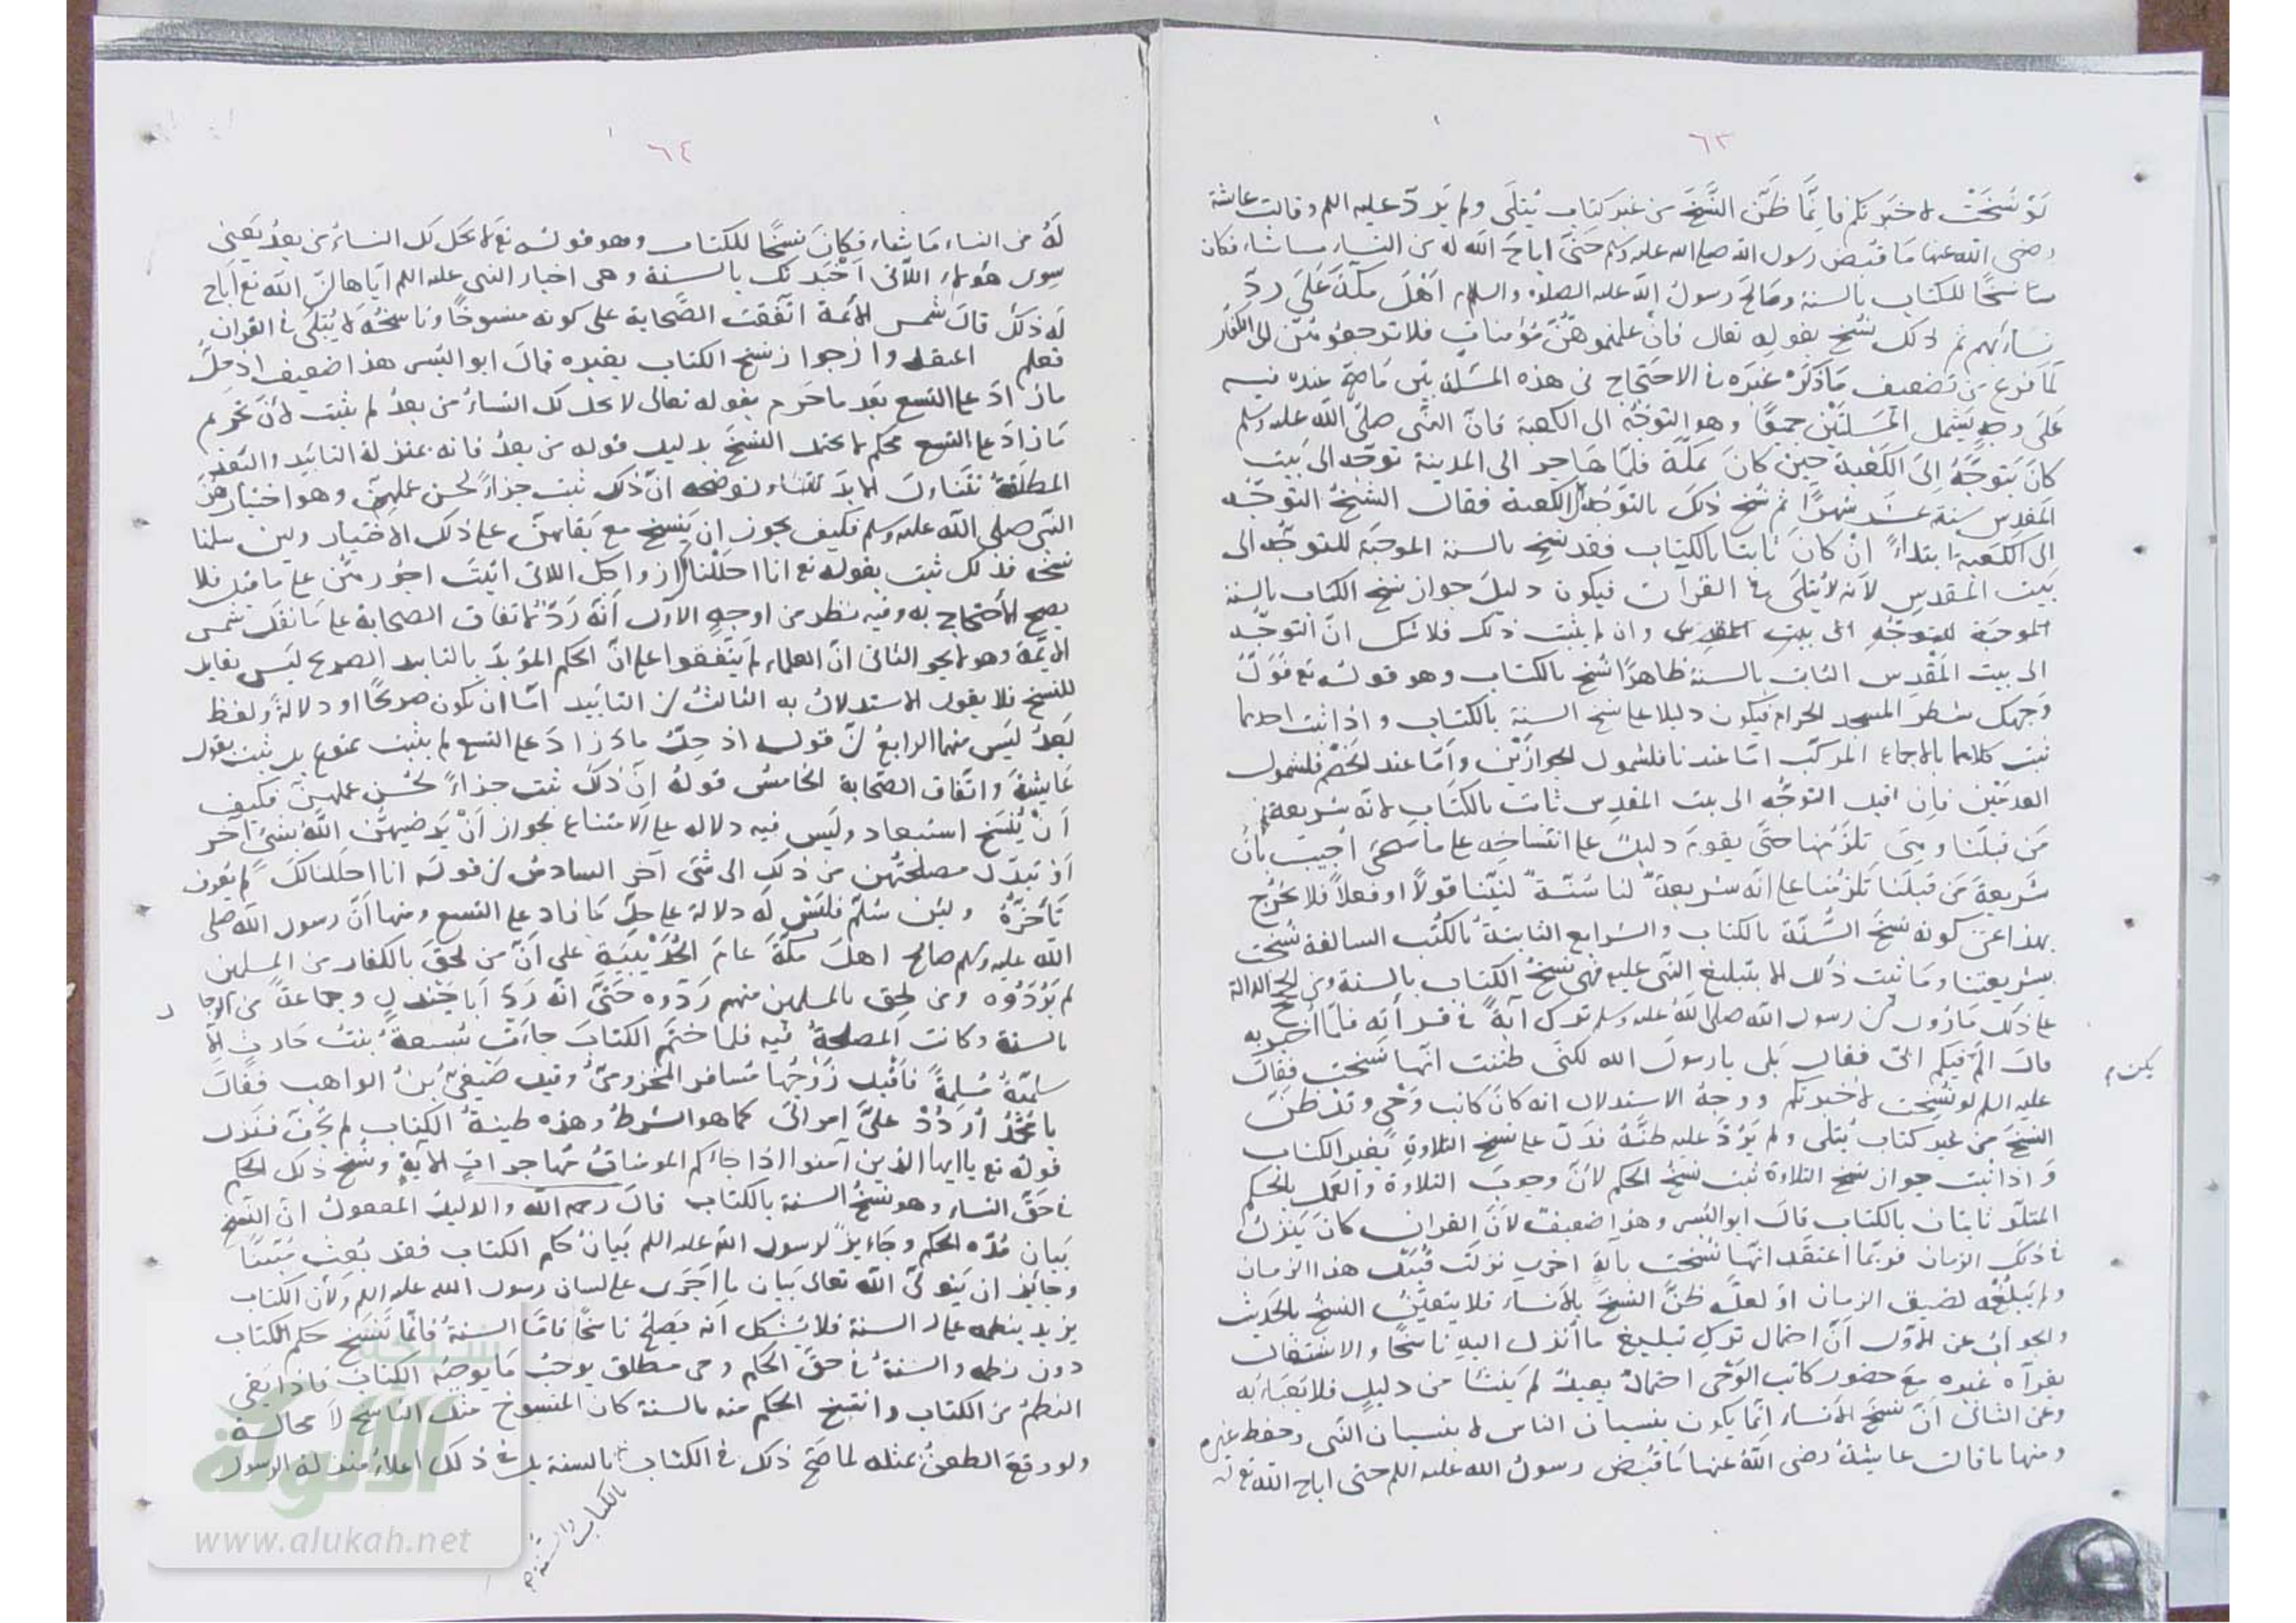 ٦٣
لو نسخت لاخبرتكم فانما ظن النسخ من غير كتاب يتلى ولم يرد عليه اللم وقالت عائشة
رضي الله عنها ما قبض رسول الله صلى الله عليه وسلم حتى اباح الله له من النساء ما شاء فكان
ناسخا للكتاب بالسنة وصالح رسول الله عليه الصلاة والسلام اهل مكة على رد
نسائهم ثم ذلك نسخ بقوله تعالى فان علمتموهن مؤمنات فلا ترجعوهن الى الكفار
لما فرغ من تضعيف ما ذكره غيره في الاحتجاج في هذه المسئلة بين ما صح عنده فيه
على وجه يشمل المسئلتين جميعا وهو التوجه الى الكعبة فان النبي صلى الله عليه وسلم
كان يتوجه الى الكعبة حين كان بمكة فلما هاجر الى المدينة توجه الى بيت
المقدس ستة عشر شهرا ثم نسخ ذلك بالتوجه الى الكعبة فقال الشيخ التوجه
الى الكعبة ابتداء ان كان ثابتا بالكتاب فقد نسخ بالسنة الموجبة للتوجه الى
بيت المقدس لانه لا يتلى في القرآن فيكون دليل جواز نسخ الكتاب بالسنة
الموجبة للتوجه الى بيت المقدس وان لم يثبت ذلك فلا شك ان التوجه
الى بيت المقدس الثابت بالسنة ظاهرا نسخ بالكتاب وهو قوله تع فول
وجهك شطر المسجد الحرام فيكون دليلا على نسخ السنة بالكتاب واذا ثبت احدهما
ثبت كلاهما بالاجماع المركب اما عندنا فلشمول الجوازين واما عند الخصم فلشمول
العدمين فان قيل التوجه الى بيت المقدس ثابت بالكتاب لانه شريعة
من قبلنا وهي تلزمنا حتى يقوم دليل على انتساخه على ما سيجئ اجيب بان
شريعة من قبلنا تلزمنا على انه شريعة لنا سنة نبينا قولا او فعلا فلا يخرج
بهذا عن كونه نسخ السنة بالكتاب والشرايع الثابتة بالكتب السالفة نسخت
بشريعتنا وما ثبت ذلك الا بتبليغ النبي عليه فهي نسخ الكتاب بالسنة ومن الحجج الدالة
على ذلك ما روي ان رسول الله صلى الله عليه وسلم ترك آية في قرأته فلما اخبر به
قال الم يكن فيكم ابي فقال بلى يا رسول الله لكني ظننت انها نسخت فقال
عليه اللم لو نسخت لاخبرتكم ووجه الاستدلال انه كان كاتب وحي وقد ظن
النسخ من غير كتاب يتلى ولم يرد عليه ظنه فدل على نسخ التلاوة بغير الكتاب
واذا ثبت جواز نسخ التلاوة ثبت نسخ الحكم لان وجوب التلاوة والعمل بالحكم
المتلو ثابتان بالكتاب قال ابو اليسر وهذا ضعيف لان القران كان ينزل
في ذلك الزمان فربما اعتقد انها نسخت بآية اخرى نزلت قبيل هذا الزمان
ولم تبلغه لضيق الزمان او لعله ظن النسخ بالانساء فلا يتعين النسخ بالحديث
والجواب عن الاول ان احتمال ترك تبليغ ما انزل اليه ناسخا والاشتغال
بقرآة غيره مع حضور كاتب الوحي احتمال بعيد لم ينشأ من دليل فلا يعبأ به
وعن الثاني ان نسخ الانساء انما يكون بنسيان الناس لا بنسيان النبي وحفظ غيره
ومنها ما قالت عايشة رضي الله عنها ما قبض رسول الله عليه اللم حتى اباح الله تع
يكن م
٦٤
له من النساء ما شاء فكان نسخا للكتاب وهو قوله تع لا يحل لك النساء من بعد يعني
سوى هؤلاء اللاتي اخبرتك بالسنة وهي اخبار النبي عليه اللم اياها ان الله تع اباح
له ذلك قال شمس الائمة اتفقت الصحابة على كونه منسوخا وناسخه لا يتلى في القران
فعلم جواز نسخ الكتاب بغيره قال ابو اليسر هذا ضعيف اذ حل
ما زاد على التسع بعد ما حرم بقوله تعالى لا يحل لك النساء من بعد لم يثبت لان تحريم
ما زاد على التسع محكم لا يحتمل النسخ بدليل قوله من بعد فانه بمنزلة التابيد والبعد
المطلقة تتناول الابد لتناء نوضحه ان ذلك ثبت جزاء لحسن عملهن وهو اختيارهن
النبي صلى الله عليه وسلم فكيف يجوز ان ينسخ مع بقائهن على ذلك الاختيار ولئن سلمنا
نسخه فذلك ثبت بقوله تع انا احللنا لك ازواجك اللاتي اتيت اجورهن على ما قيل فلا
يصح الاحتجاج به وفيه نظر من اوجه الاول انه رد لاتفاق الصحابة على ما نقل شمس
الائمة وهو لا يجوز الثاني ان العلماء لم يتفقوا على ان الحكم المؤبد بالتابيد الصريح ليس بقابل
للنسخ فلا يقوى الاستدلال به الثالث ان التابيد اما ان يكون صريحا او دلالة ولفظ
بعد ليس منهما الرابع ان قوله اذ حل ما زاد على التسع لم يثبت ممنوع بل ثبت بقول
عايشة واتفاق الصحابة الخامس قوله ان ذلك ثبت جزاء لحسن عملهن فكيف
ان ينسخ استبعاد وليس فيه دلالة على الامتناع لجواز ان يرضيهن الله بشيء آخر
او تبدل مصلحتهن من ذلك الى شئ آخر السادس ان قوله انا احللنا لك لم يعرف
تأخره ولئن سلم فليس له دلالة على حل ما زاد على التسع ومنها ان رسول الله صلى
الله عليه وسلم صالح اهل مكة عام الحديبية على ان من لحق بالكفار من المسلمين
لم يردوه ومن لحق بالمسلمين منهم ردوه حتى انه رد ابا جندل وجماعة من الرجال
بالسنة وكانت المصلحة فيه فلما ختم الكتاب جاءت سبيعة بنت حارث
مسلمة فأقبل زوجها مسافر المخزومي وقيل صيفي بن الواهب فقال
يا محمد اردد علي امراتي كما هو الشرط وهذه طينة الكتاب لم تجف فنزل
قوله تع يا ايها الذين آمنوا اذا جاءكم المومنات مهاجرات الآية ونسخ ذلك الحكم
في حق النساء وهو نسخ السنة بالكتاب قال رحمه الله والدليل المعقول ان النسخ
بيان مدة الحكم وجايز لرسول الله عليه اللم بيان حكم الكتاب فقد بعث مبينا
وجايز ان يتولى الله تعالى بيان ما اجرى على لسان رسول الله عليه اللم ولان الكتاب
يزيد بنظمه على السنة فلا يشكل انه يصلح ناسخا فاما السنة فانما تنسخ حكم الكتاب
دون نظمه والسنة في حق الحكم وحي مطلق يوجب ما يوجبه الكتاب فاذا بقي
النظم من الكتاب وانتسخ الحكم منه بالسنة كان المنسوخ مثل الناسخ لا محالة
ولو وقع الطعن بمثله لما صح ذلك في الكتاب بالسنة بل في ذلك اعلاء منزلة الرسول
بالكتاب والسنة
شبكة
الألوكة
www.alukah.net